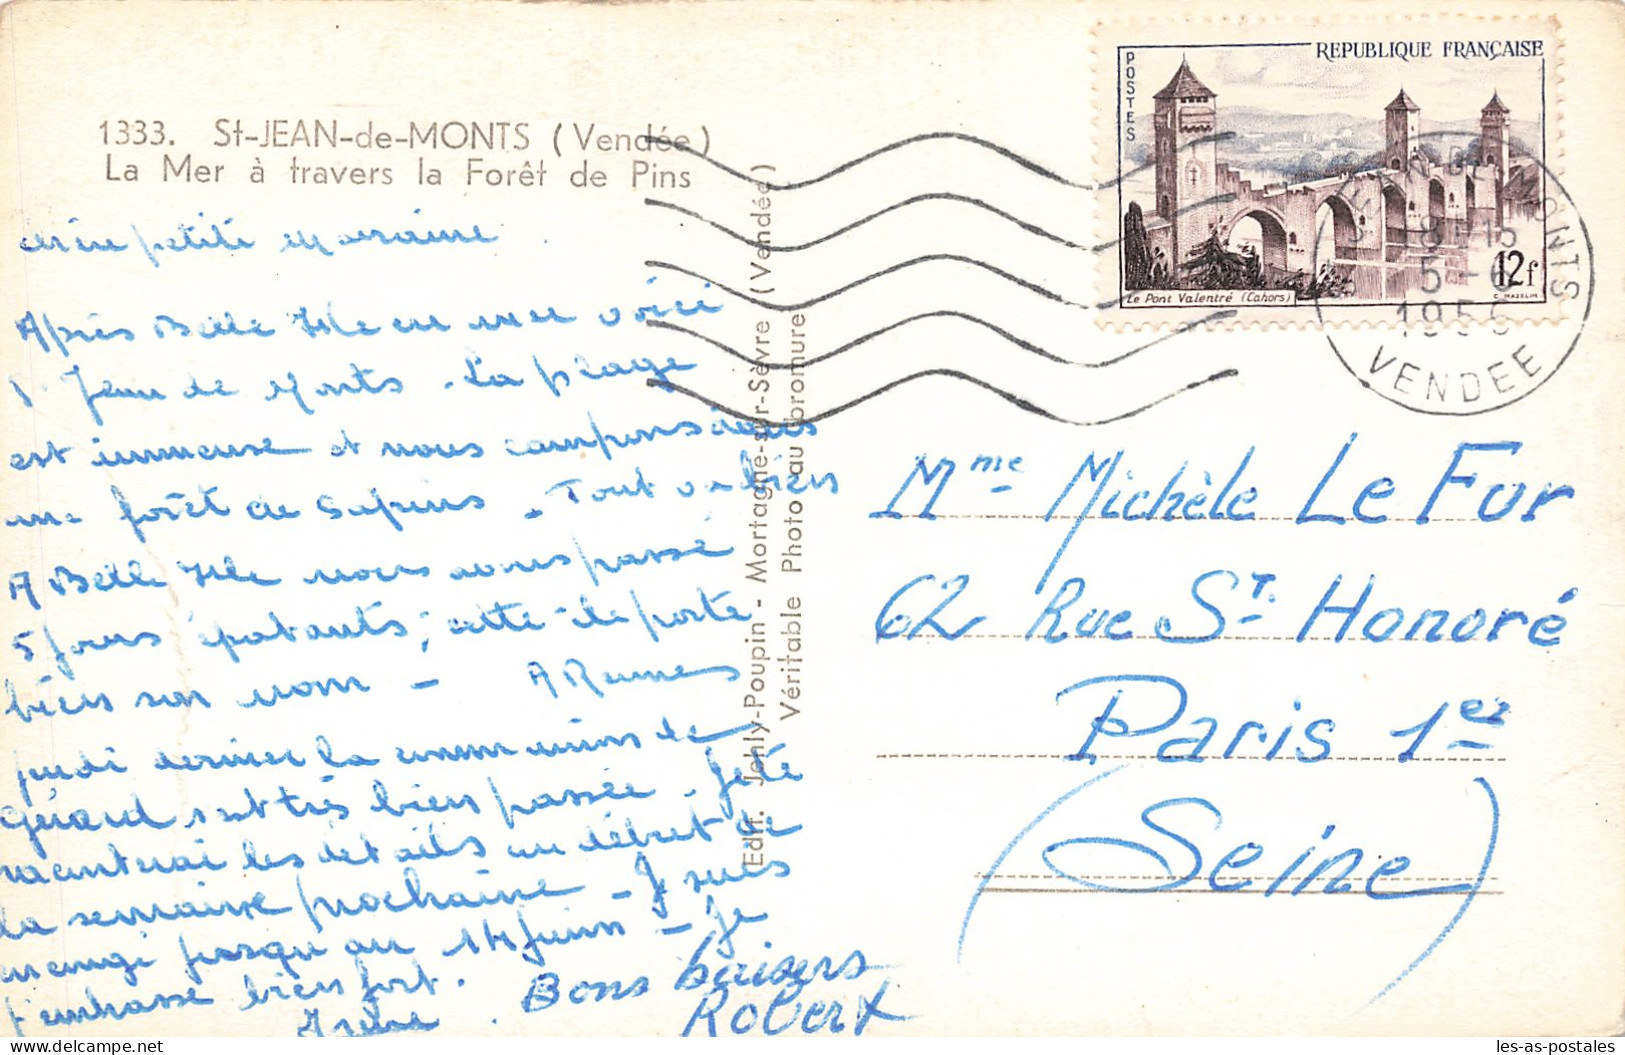 1333. St-JEAN-de-MONTS (Vendée)
La Mer à travers la Forêt de Pins
petite marraine.
Après Belle Isle en mer voici
St Jean de Monts. La plage
est immense et nous campons dans
une forêt de sapins. Tout va bien
A Belle Isle nous avons passé
5 jours épatants; cette île porte
bien son nom - A Rennes
jeudi dernier la communion de
Gérard s'est très bien passée. Je te
raconterai les détails au début de
la semaine prochaine - J'suis
en congé jusqu'au 14 juin - Je
t'embrasse bien fort.
Irène.
Bons baisers
Robert
Edit. Jehly-Poupin - Mortagne-sur-Sèvre (Vendée)
Véritable Photo au bromure
POSTES
REPUBLIQUE FRANÇAISE
Le Pont Valentré (Cahors)
12f
C. MAZELIN
ST JEAN-DE-MONTS
18H15
5 - 6
1956
VENDEE
Mme Michèle Le Fur
62 Rue St Honoré
Paris 1er
(Seine)
les-as-postales.com